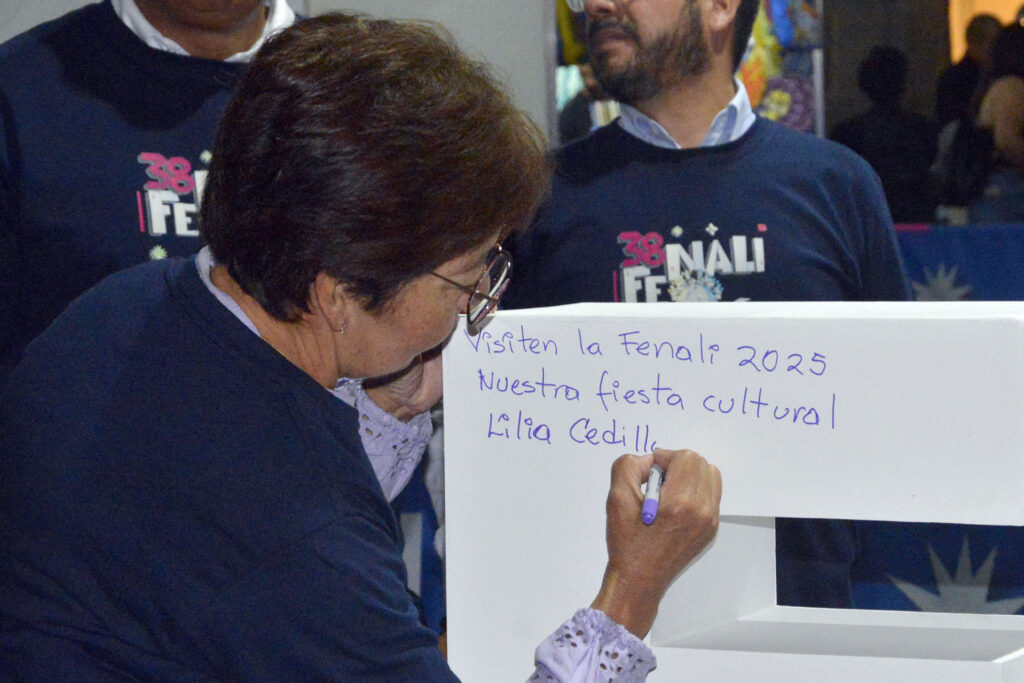 38
FE
38
NALI
FE
Visiten la Fenali 2025
Nuestra fiesta cultural
Lilia Cedill